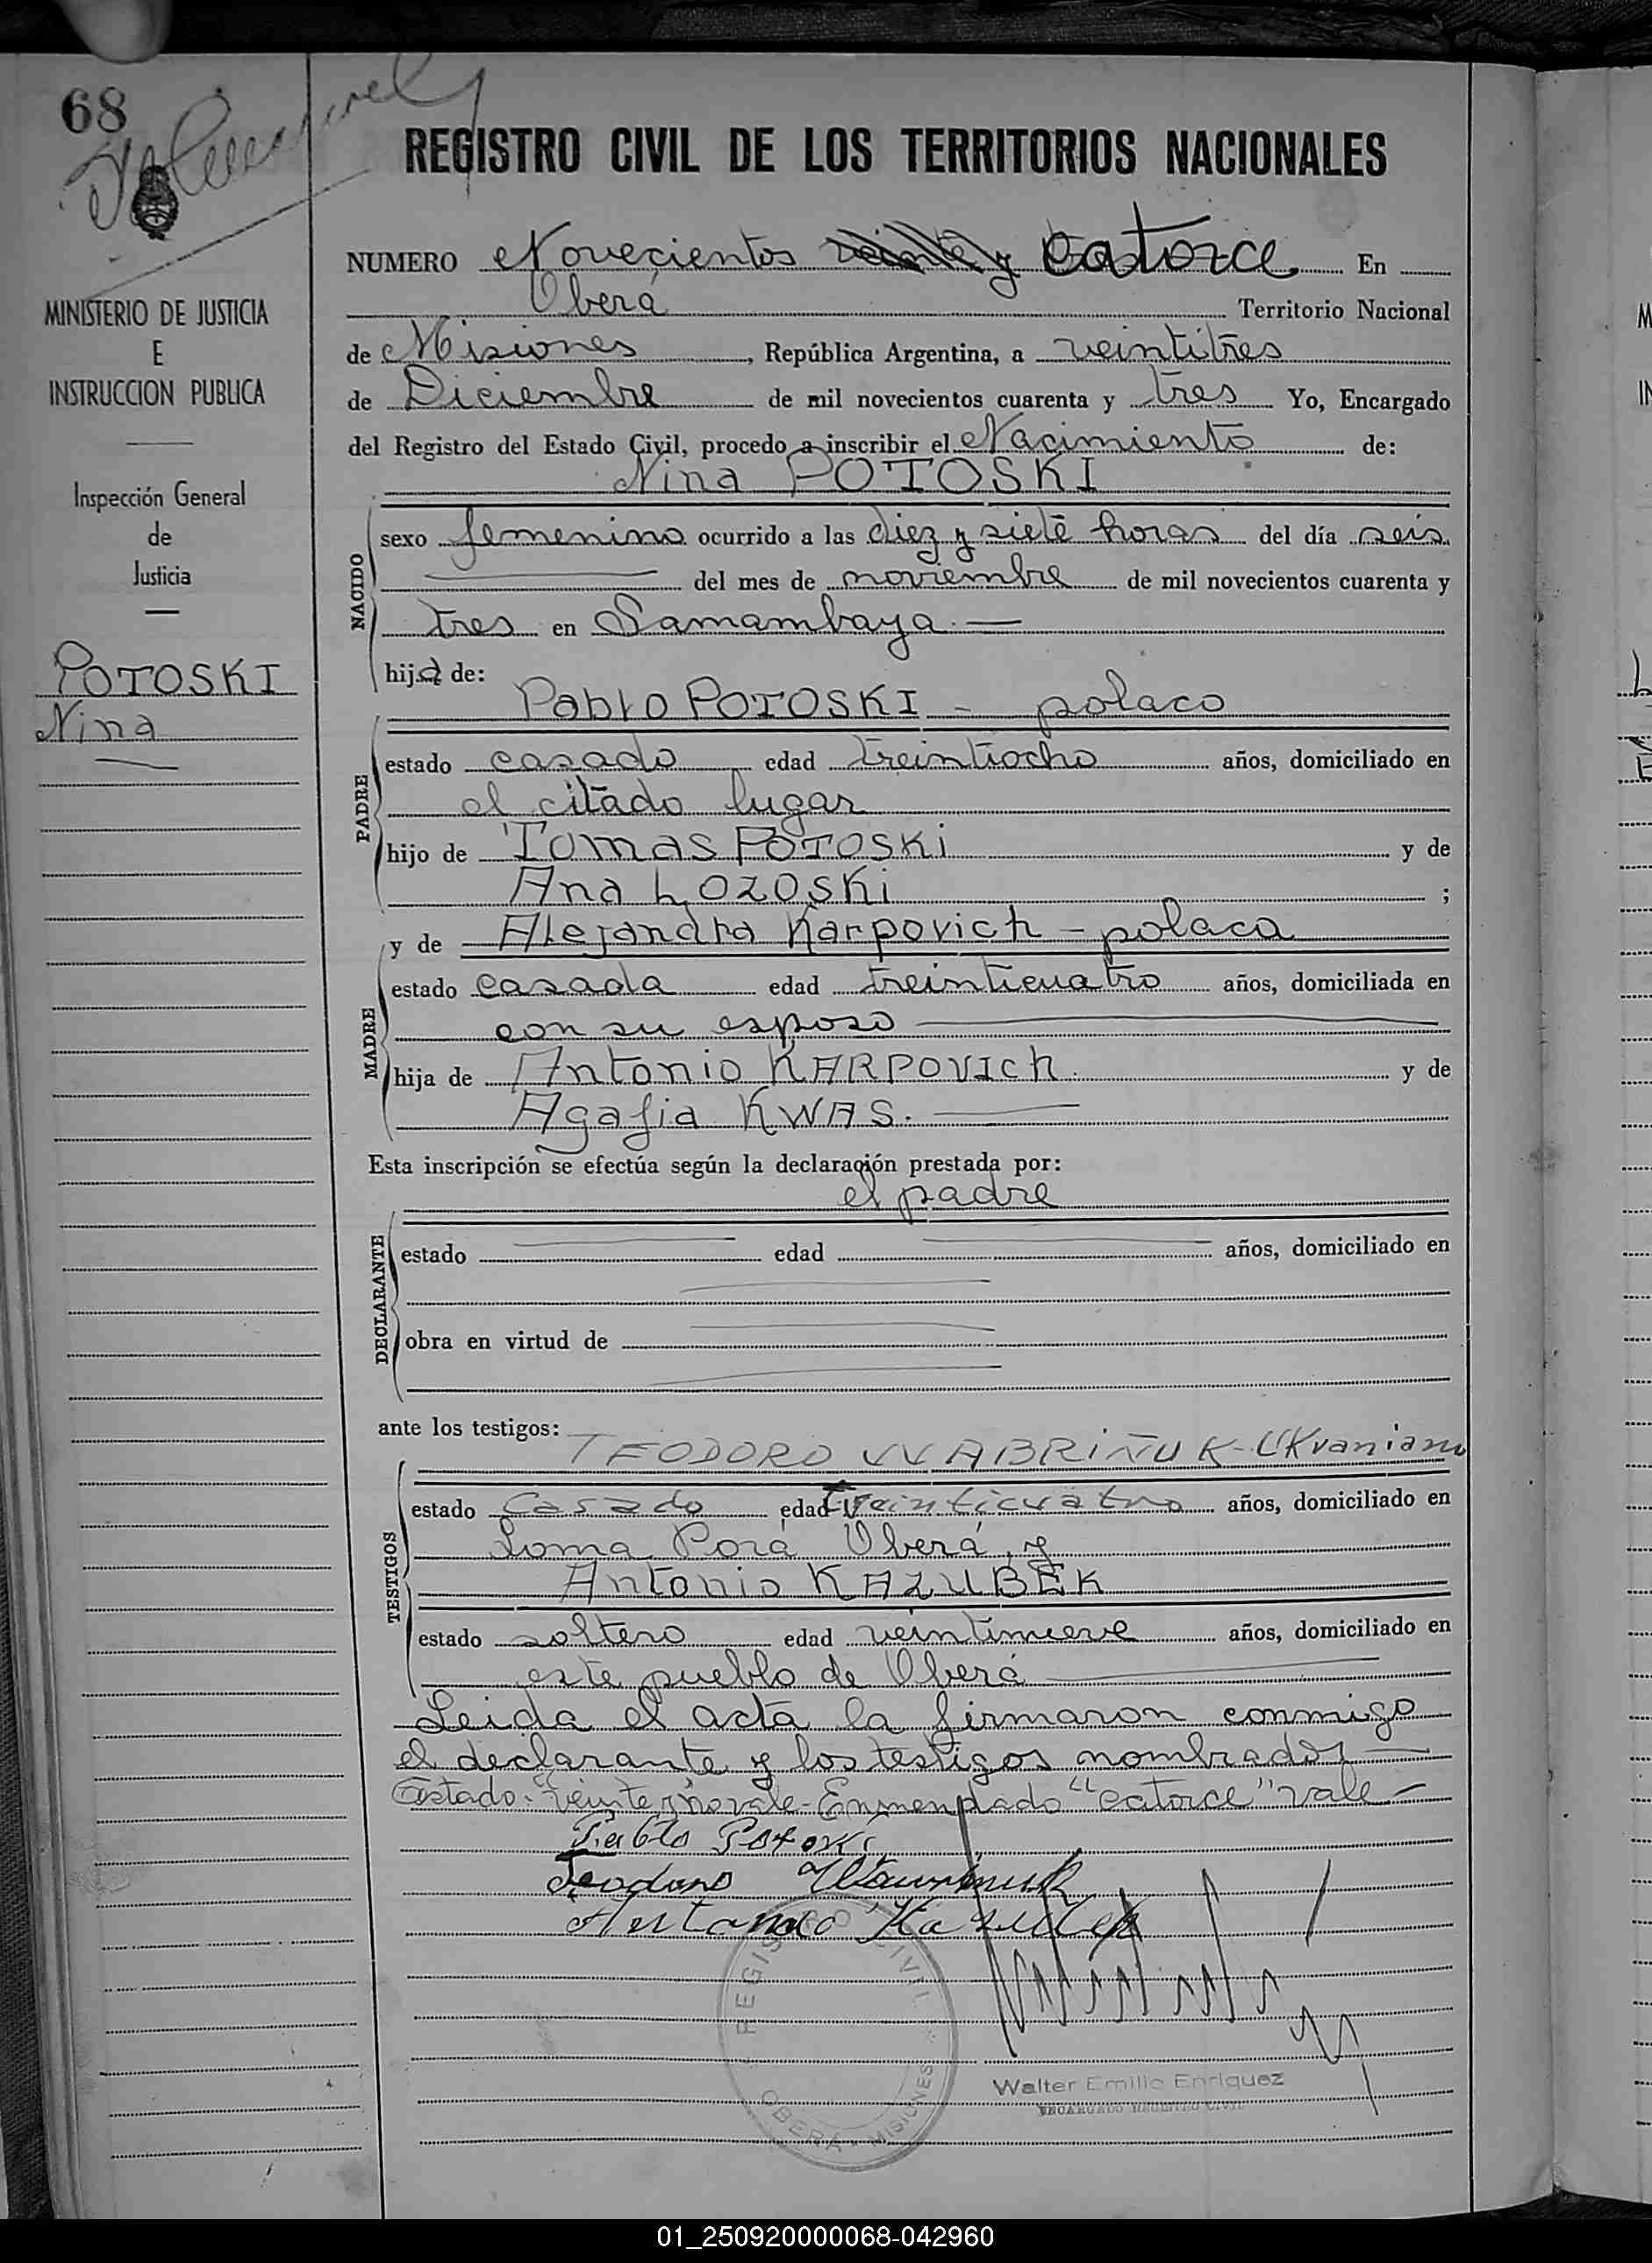 68
MINISTERIO DE JUSTICIA
E
INSTRUCCION PUBLICA
Inspección General
de
Justicia
POTOSKI
Nina
REGISTRO CIVIL DE LOS TERRITORIOS NACIONALES
NUMERO Novecientos veinte y catorce En
Oberá Territorio Nacional
de Misiones, República Argentina, a veintitres
de Diciembre de mil novecientos cuarenta y tres Yo, Encargado
del Registro del Estado Civil, procedo a inscribir el Nacimiento de:
Nina POTOSKI
NACIDO
sexo femenino ocurrido a las diez y siete horas del día seis
del mes de noviembre de mil novecientos cuarenta y
tres en Samambaya.—
hija de:
Pablo POTOSKI - polaco
PADRE
estado casado edad treintiocho años, domiciliado en
el citado lugar
hijo de Tomas POTOSKi y de
Ana LOZOSKi ;
y de Alejandra Karpovich - polaca
MADRE
estado casada edad treinticuatro años, domiciliada en
con su esposo
hija de Antonio KARPOVICH y de
Agafia KWAS.
Esta inscripción se efectúa según la declaración prestada por:
el padre
DECLARANTE
estado edad años, domiciliado en
obra en virtud de
ante los testigos:
TEODORO WABRIÑUK - UKraniano
TESTIGOS
estado Casado edad treinticuatro años, domiciliado en
Loma Porá Oberá, y
Antonio KAZUBEK
estado soltero edad veintinueve años, domiciliado en
este pueblo de Oberá
Leida el acta la firmaron conmigo
el declarante y los testigos nombrados —
Testado: "veinte y" no vale - Enmendado "catorce" vale -
Pablo Potoski
Teodoro
Antonio Kazubek
REGISTRO CIVIL
OBERÁ - MISIONES
Walter Emilio Enriquez
ENCARGADO REGISTRO CIVIL
01_250920000068-042960